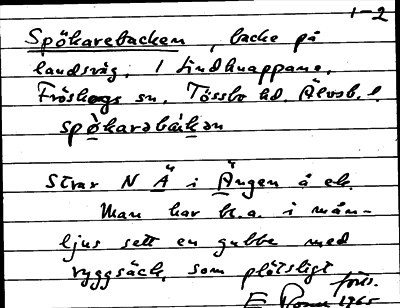 1-2
Spökarebacken, backe på
landsväg. 1 Lindknappane,
Fröskogs sn. Tössbo hd. Älvsb. l.
spökarəbakən
Strax N Ä i Ängen å ek.
Man har bl.a. i mån-
ljus sett en gubbe med
ryggsäck, som plötsligt
förs.
E 1965